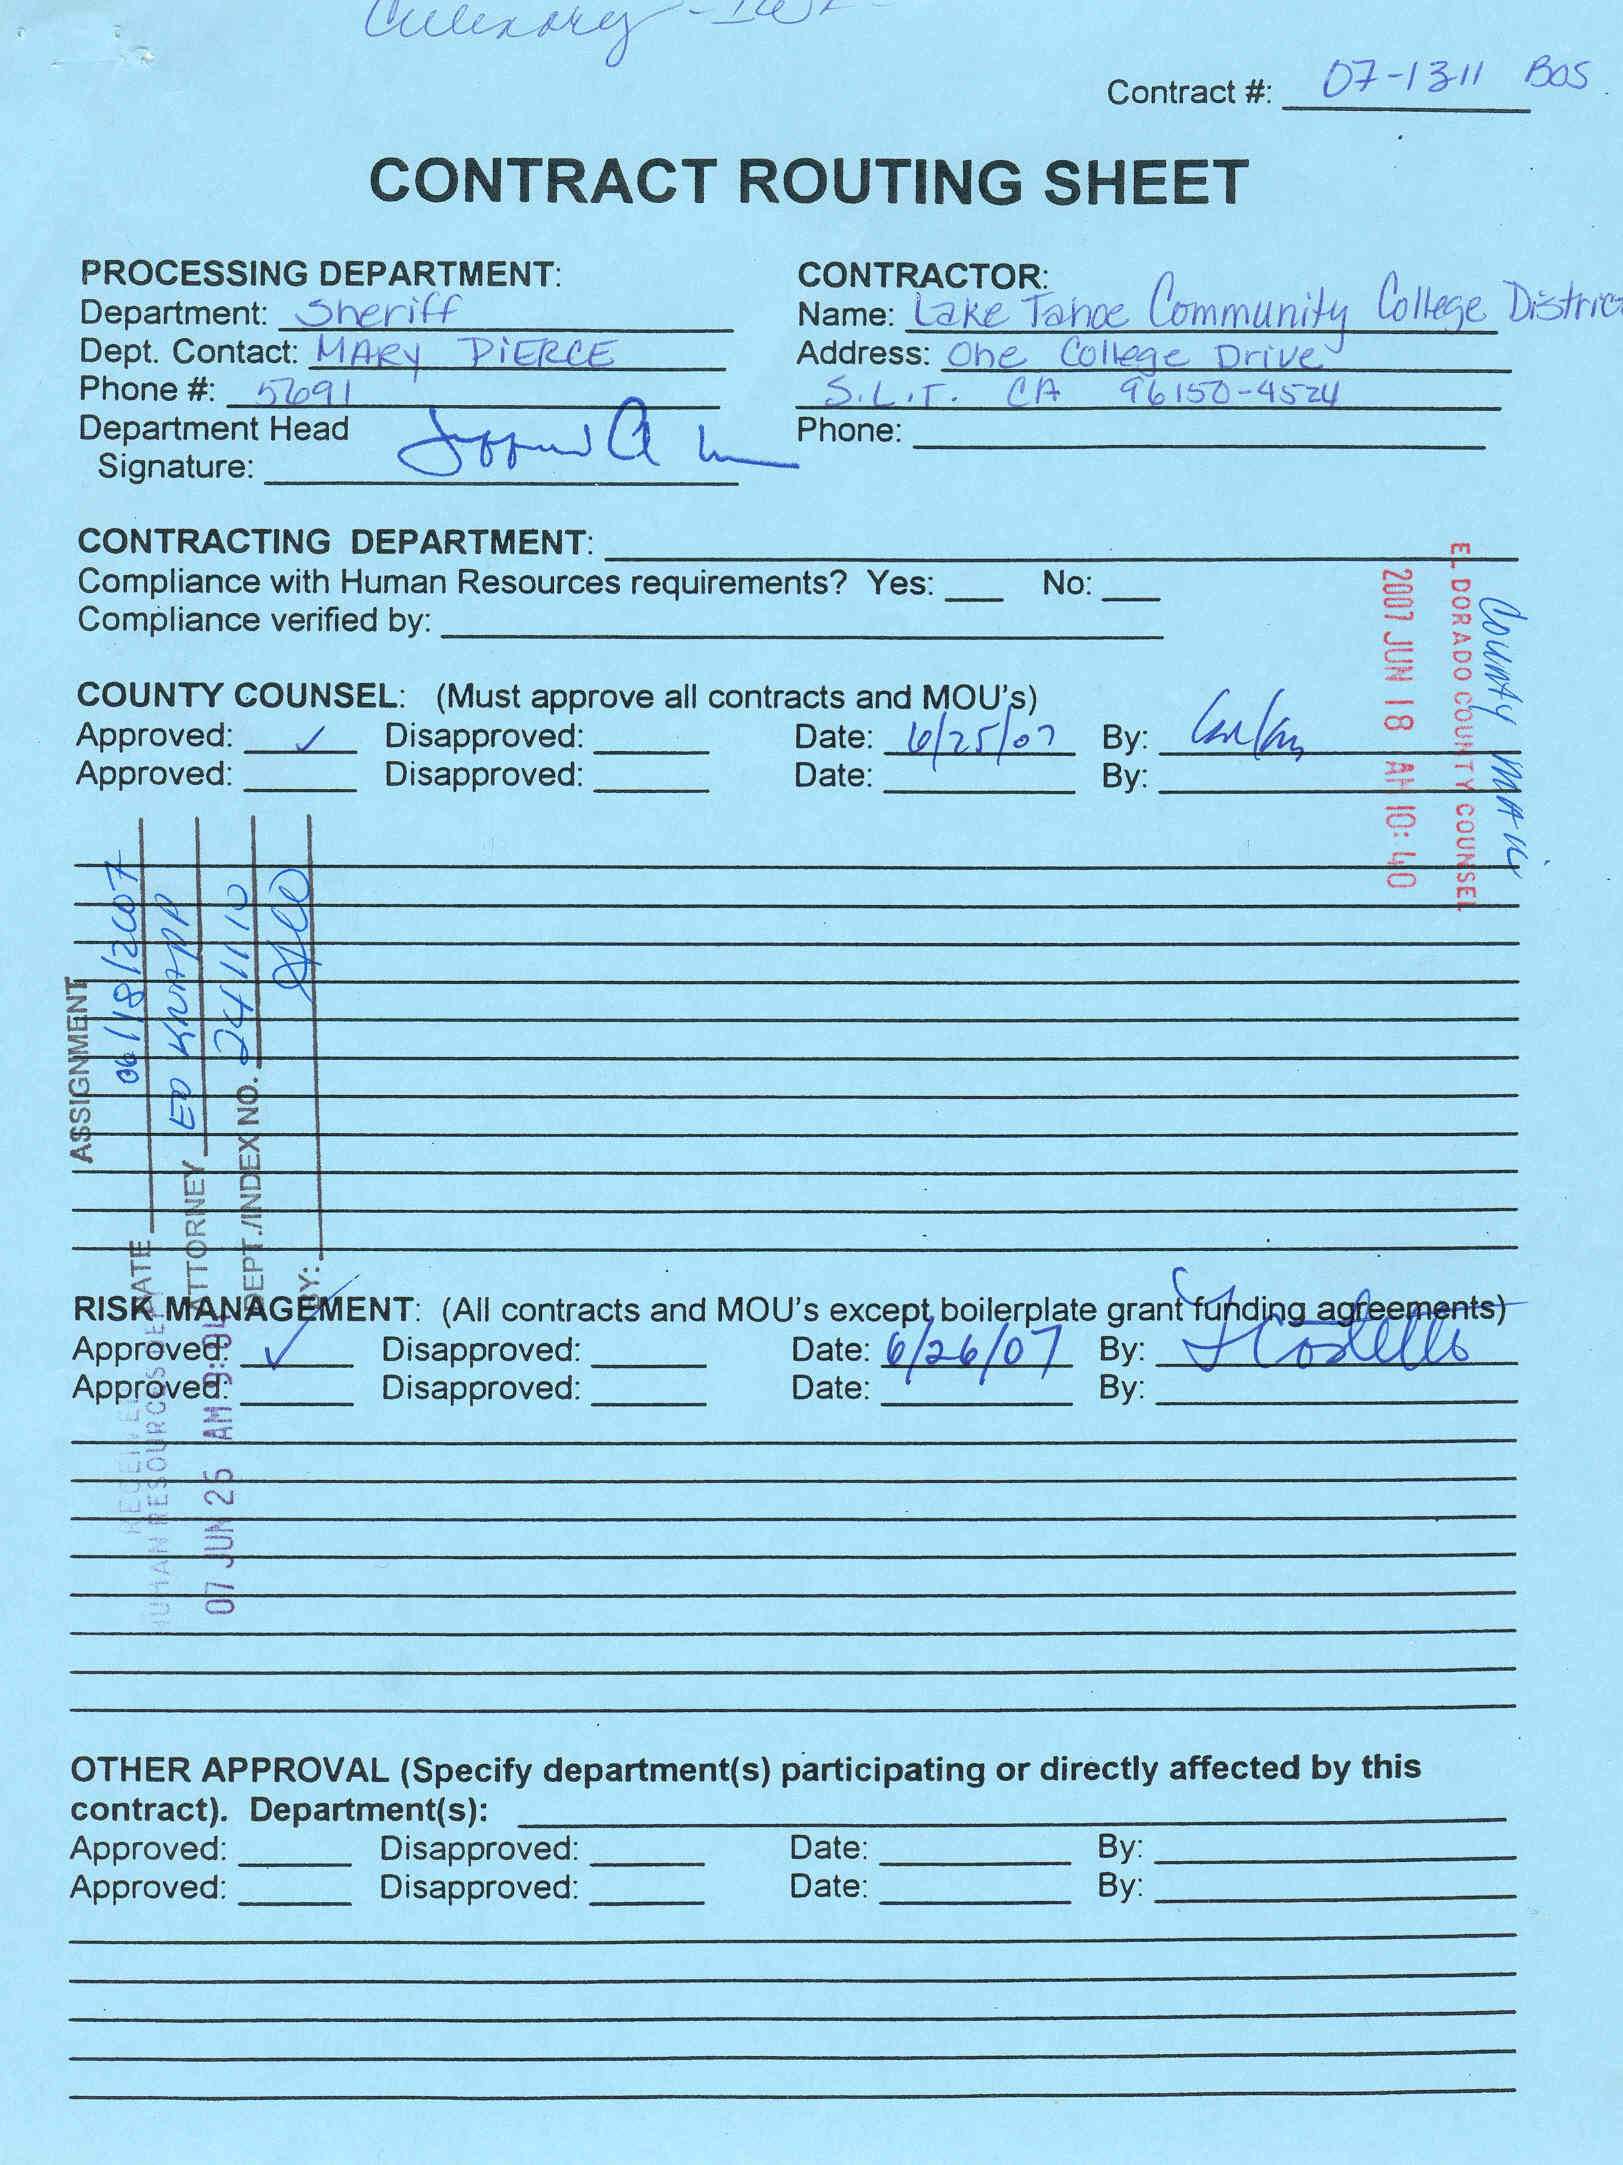 Culinary
Contract #: 07-1311 BOS
CONTRACT ROUTING SHEET
PROCESSING DEPARTMENT:
Department: Sheriff
Dept. Contact: MARY PIERCE
Phone #: 5691
Department Head
Signature:
CONTRACTOR:
Name: Lake Tahoe Community College Distric
Address: One College Drive
S.L.T. CA 96150-4524
Phone:
CONTRACTING DEPARTMENT:
Compliance with Human Resources requirements? Yes: No:
Compliance verified by:
EL DORADO COUNTY COUNSEL
2007 JUN 18 AM 10:40
County
COUNTY COUNSEL: (Must approve all contracts and MOU's)
Approved: ✓ Disapproved: Date: 6/25/07 By:
Approved: Disapproved: Date: By:
ASSIGNMENT
DATE 06/18/2007
ATTORNEY ED KNAPP
DEPT./INDEX NO. 241110
BY:
RISK MANAGEMENT: (All contracts and MOU's except boilerplate grant funding agreements)
Approved: ✓ Disapproved: Date: 6/26/07 By: J Costello
Approved: Disapproved: Date: By:
RECEIVED
HUMAN RESOURCES DEPT
07 JUN 26 AM
OTHER APPROVAL (Specify department(s) participating or directly affected by this
contract). Department(s):
Approved: Disapproved: Date: By:
Approved: Disapproved: Date: By: